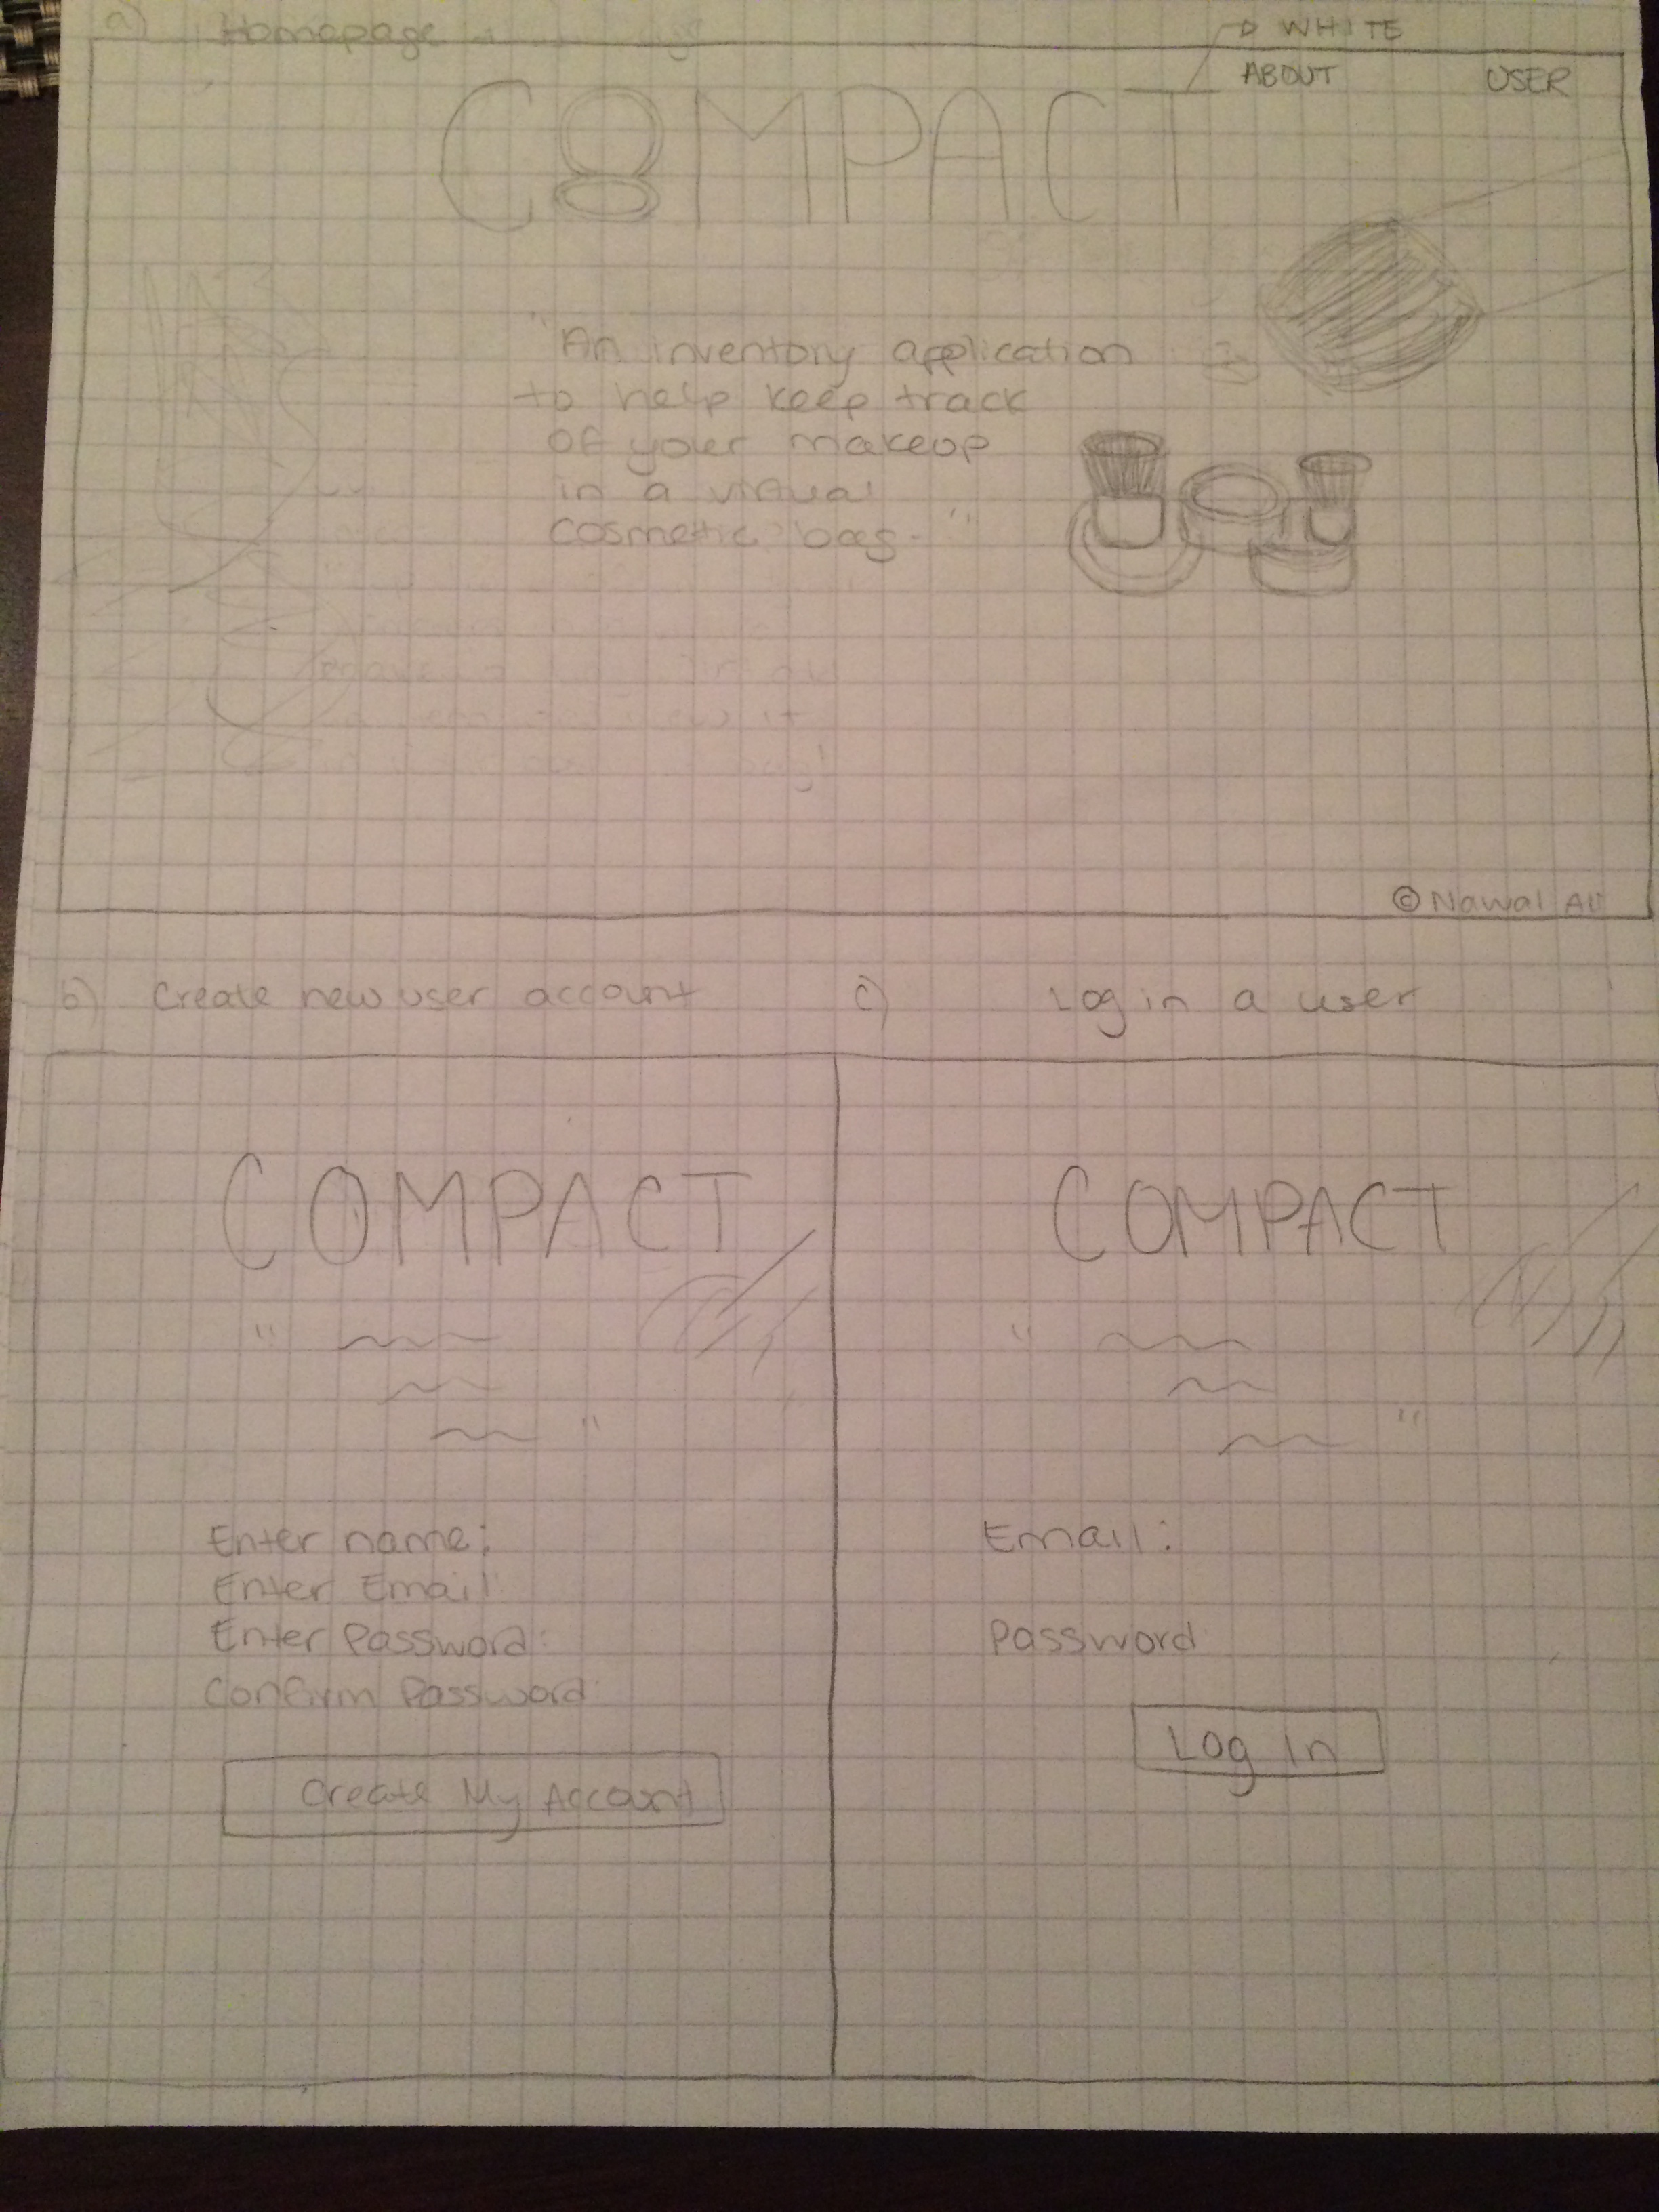 a) Homepage
WHITE
ABOUT USER
COMPACT
"An inventory application
to help keep track
of your makeup
in a virtual
cosmetic bag."
© Nawal Ali
b) Create new user account
c) Log in a user
COMPACT
" "
Enter name:
Enter Email
Enter Password:
Confirm Password
Create My Account
COMPACT
" "
Email:
Password
Log In